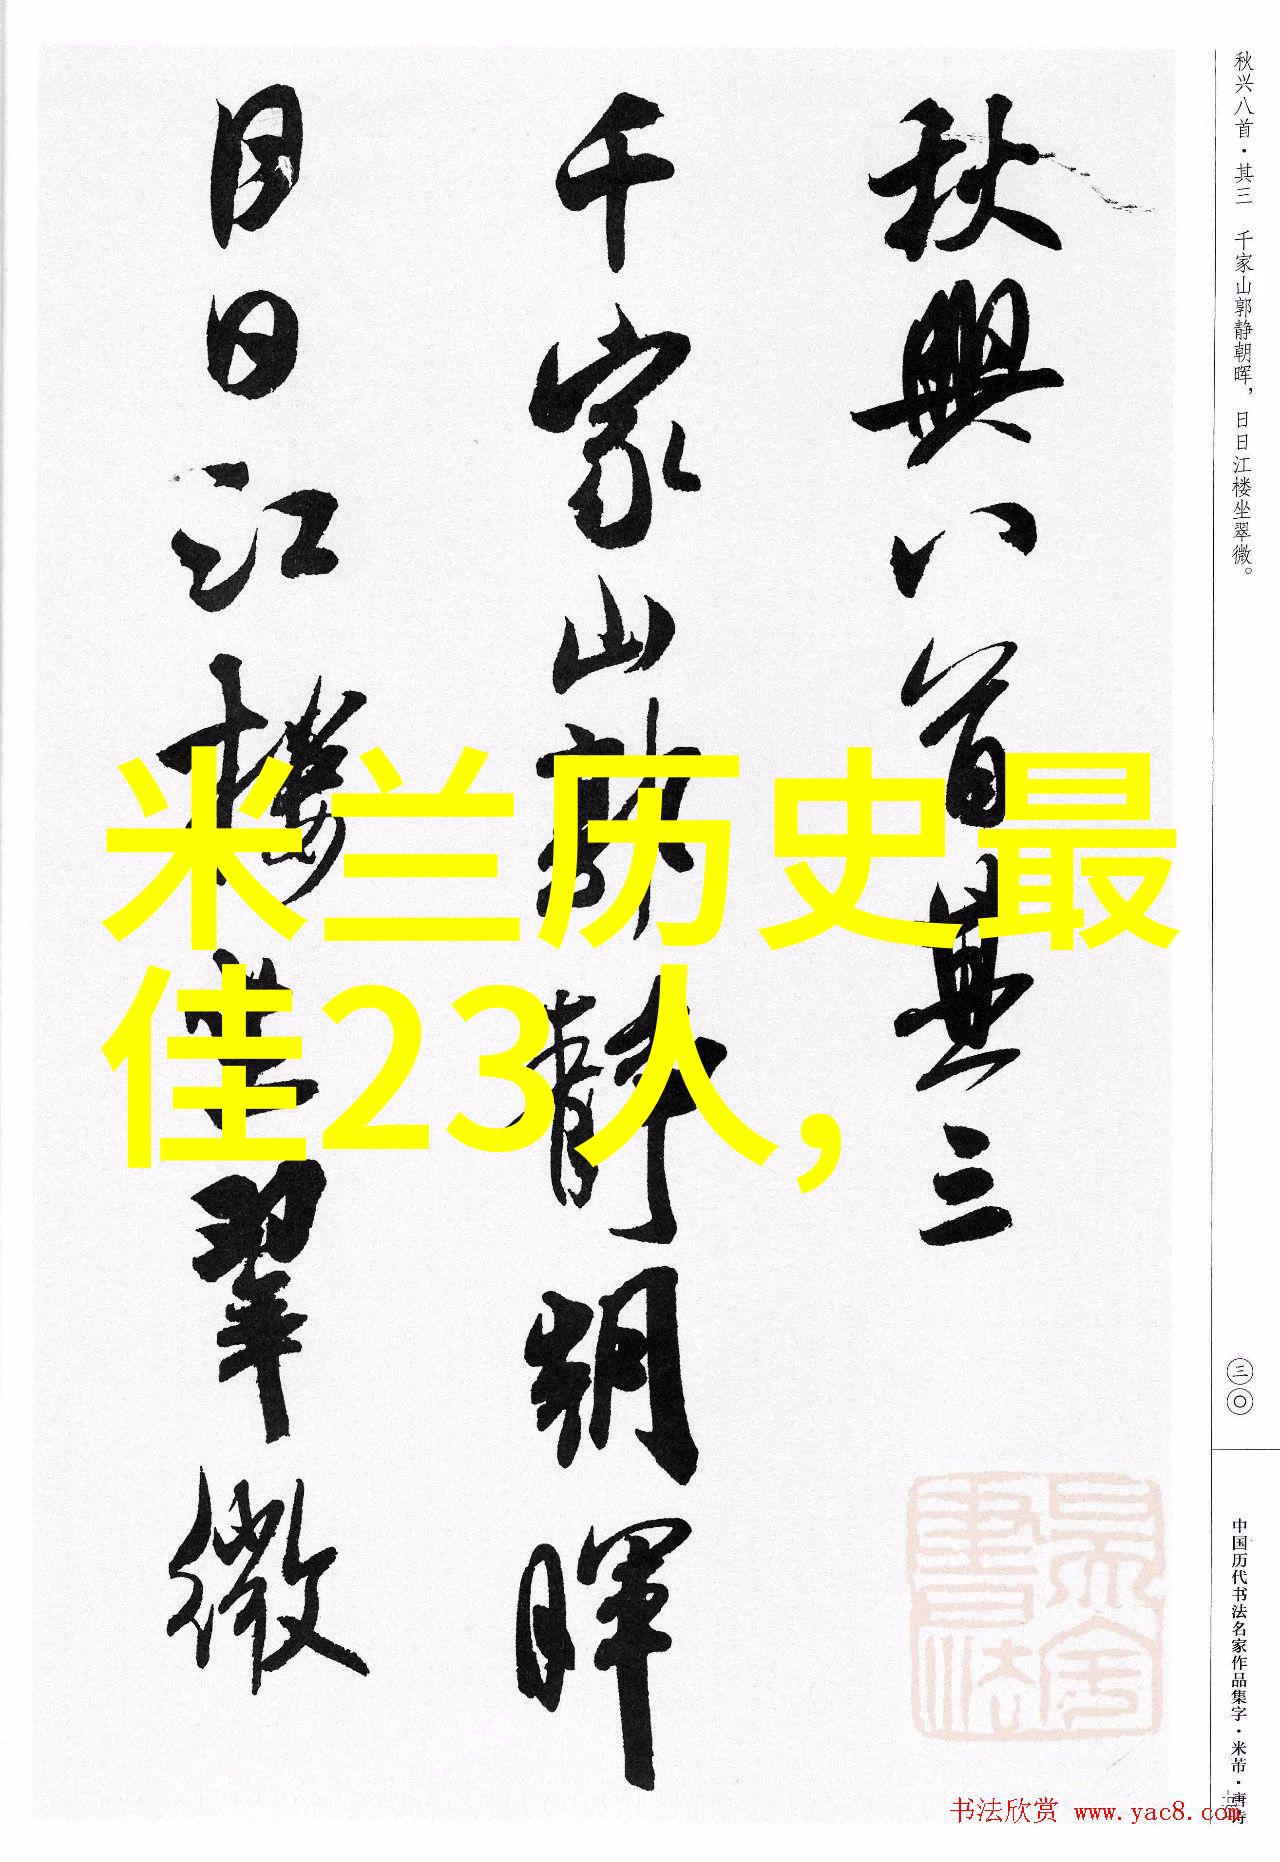 秋兴八首·其三 千家山郭静朝晖，日日江楼坐翠微。
秋興八首其三
千家山郭静朝暉
日日江樓坐翠微
米兰历史最
佳23人，
三〇
中国历代书法名家作品集字·米芾·唐诗
书法欣赏 www.yac8.com